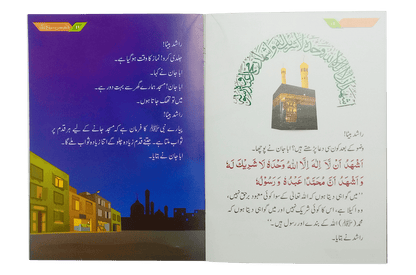 راشد بیٹا!
وضو کے بعد کون سی دعا پڑھتے ہیں؟ ابا جان نے پوچھا۔
اَشْهَدُ اَنْ لَّا اِلٰهَ اِلَّا اللّٰهُ وَحْدَهٗ لَا شَرِيْكَ لَهٗ
وَاَشْهَدُ اَنَّ مُحَمَّدًا عَبْدُهٗ وَرَسُوْلُهٗ
"میں گواہی دیتا ہوں کہ اللہ تعالیٰ کے سوا کوئی معبود برحق نہیں،
وہ اکیلا ہے، اس کا کوئی شریک نہیں اور میں گواہی دیتا ہوں کہ
محمد (ﷺ) اللہ کے بندے اور رسول ہیں۔"
راشد نے بتایا۔
راشد بیٹا!
جلدی کرو! نماز کا وقت ہو گیا ہے۔
ابا جان نے کہا۔
ابا جان! مسجد ہمارے گھر سے بہت دور ہے۔
میں تو تھک جاتا ہوں۔
راشد بیٹا!
پیارے نبی ﷺ کا فرمان ہے کہ مسجد جانے کے لیے ہر قدم پر
ثواب ملتا ہے۔ جتنے قدم زیادہ چلو گے اتنا زیادہ ثواب ملے گا۔
ابا جان نے بتایا۔